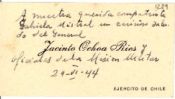 A nuestra querida compatriota
Gabriela Mistral un cariñoso salu-
do del General
Jacinto Ochoa Ríos y
oficiales de la Misión Militar
24-VI-44
EJERCITO DE CHILE